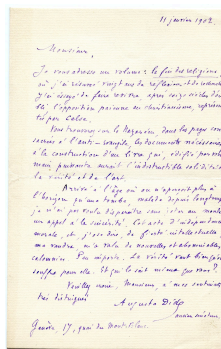 11 janvier 1902
Monsieur,
Je vous envoie un volume: la fin des religions
où j'ai résumé vingt ans de réflexion et de recherches
J'ai essayé de faire revivre après
l'opposition païenne au christianisme, représen-
tée par Celse.
Vous trouverez sur le Nazaréen, dans les pages con-
sacrées à l'anti-évangile, les documents nécessaires
à la construction d'un livre qui, édifié par votre
main puissante aurait l'indestructible solidité de
la vérité et de l'art.
Arrivé à l'âge où on n'aperçoit plus à
l'horizon qu'une tombe, malade depuis longtemps
je n'ai pas voulu disparaître sans
un appel à la sincérité. Cet acte d'indépendance
morale, et, j'ose dire, de fierté intellectuelle
m'a valu de nouvelles et abominables
calomnies. Peu importe. La vérité vaut bien qu'on
souffre pour elle. Et qui le sait mieux que vous?
Veuillez croire, Monsieur, à mes sentiments
très distingués
Auguste Dide
ancien sénateur
Genève, 17, quai du Mont Blanc.